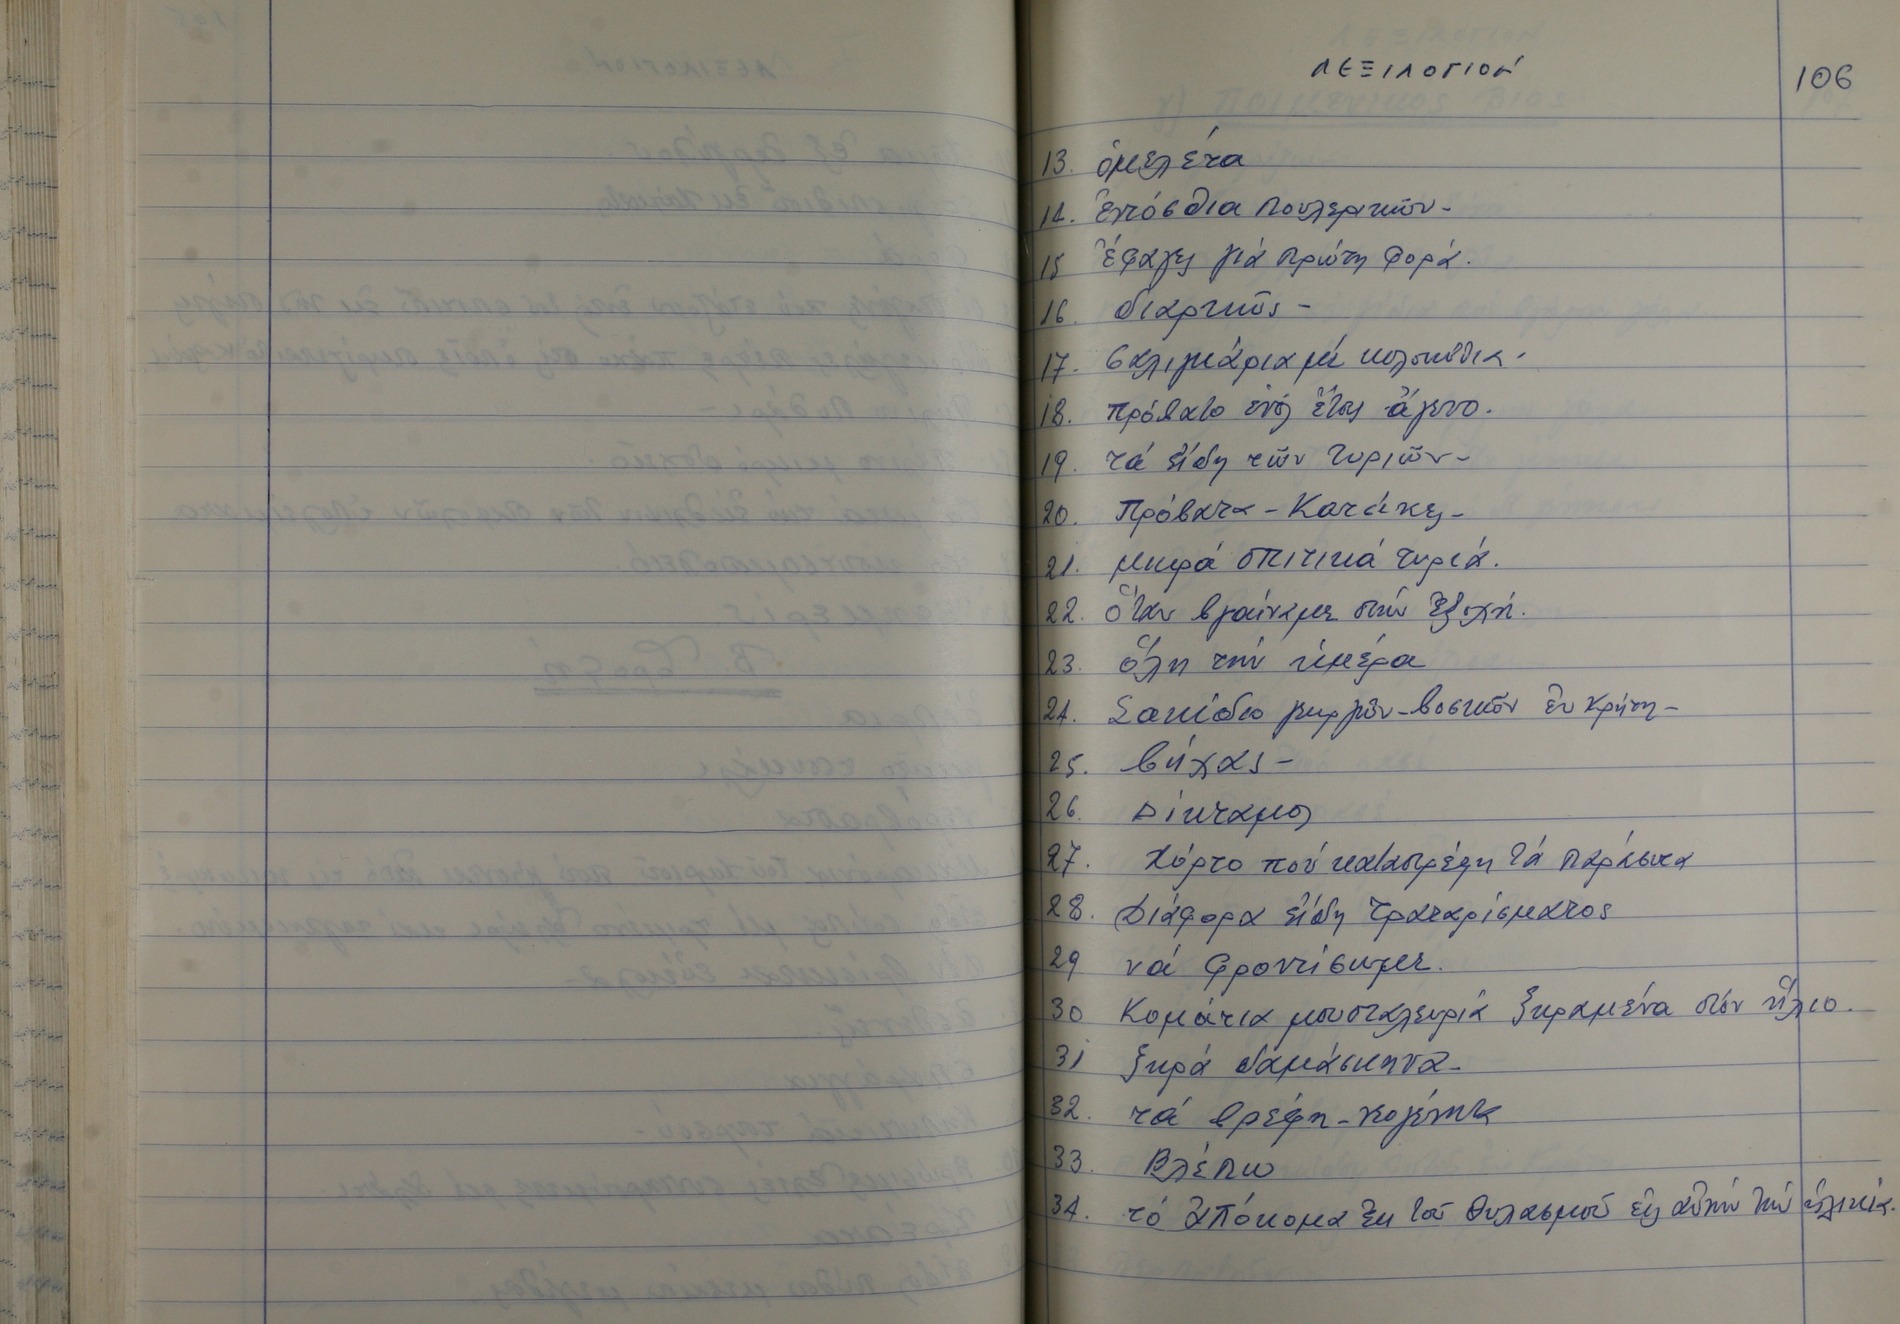 ΛΕΞΙΛΟΓΙΟΝ
106
13. ὀμελέτα
14. Ἐντόσθια πουλερικῶν-
15 Ἔφαγες γιά πρώτη φορά.
16 διαρκῶς-
17. Σαλιγκάρια μέ κολοκύθια.
18. πρόβατο ἑνός ἔτους ἄγενο.
19. τά εἴδη τῶν τυριῶν-
20. Πρόβατα-Κατσίκες-
21. μικρά σπιτικά τυριά.
22. Ὅταν βγαίναμε στήν ἐξοχή.
23. ὅλη τήν ἡμέρα
24. Σακίδιο γεωργῶν-βοσκῶν ἐν Κρήτη-
25. βήχας-
26. Δίκταμος
27. Χόρτο πού καταστρέφη τά παράσιτα
28. Διάφορα εἴδη τραταρίσματος
29 νά φροντίσωμε.
30 Κομάτια μουσταλευριά ξηραμένα στόν ἥλιο.
31 ξηρά δαμάσκηνα-
32. τά βρέφη-νεογέννητα
33. Βλέπω
34. τό ἀπόκομα ἐκ τοῦ θηλασμοῦ εἰς αὐτήν τήν ἡλικία.